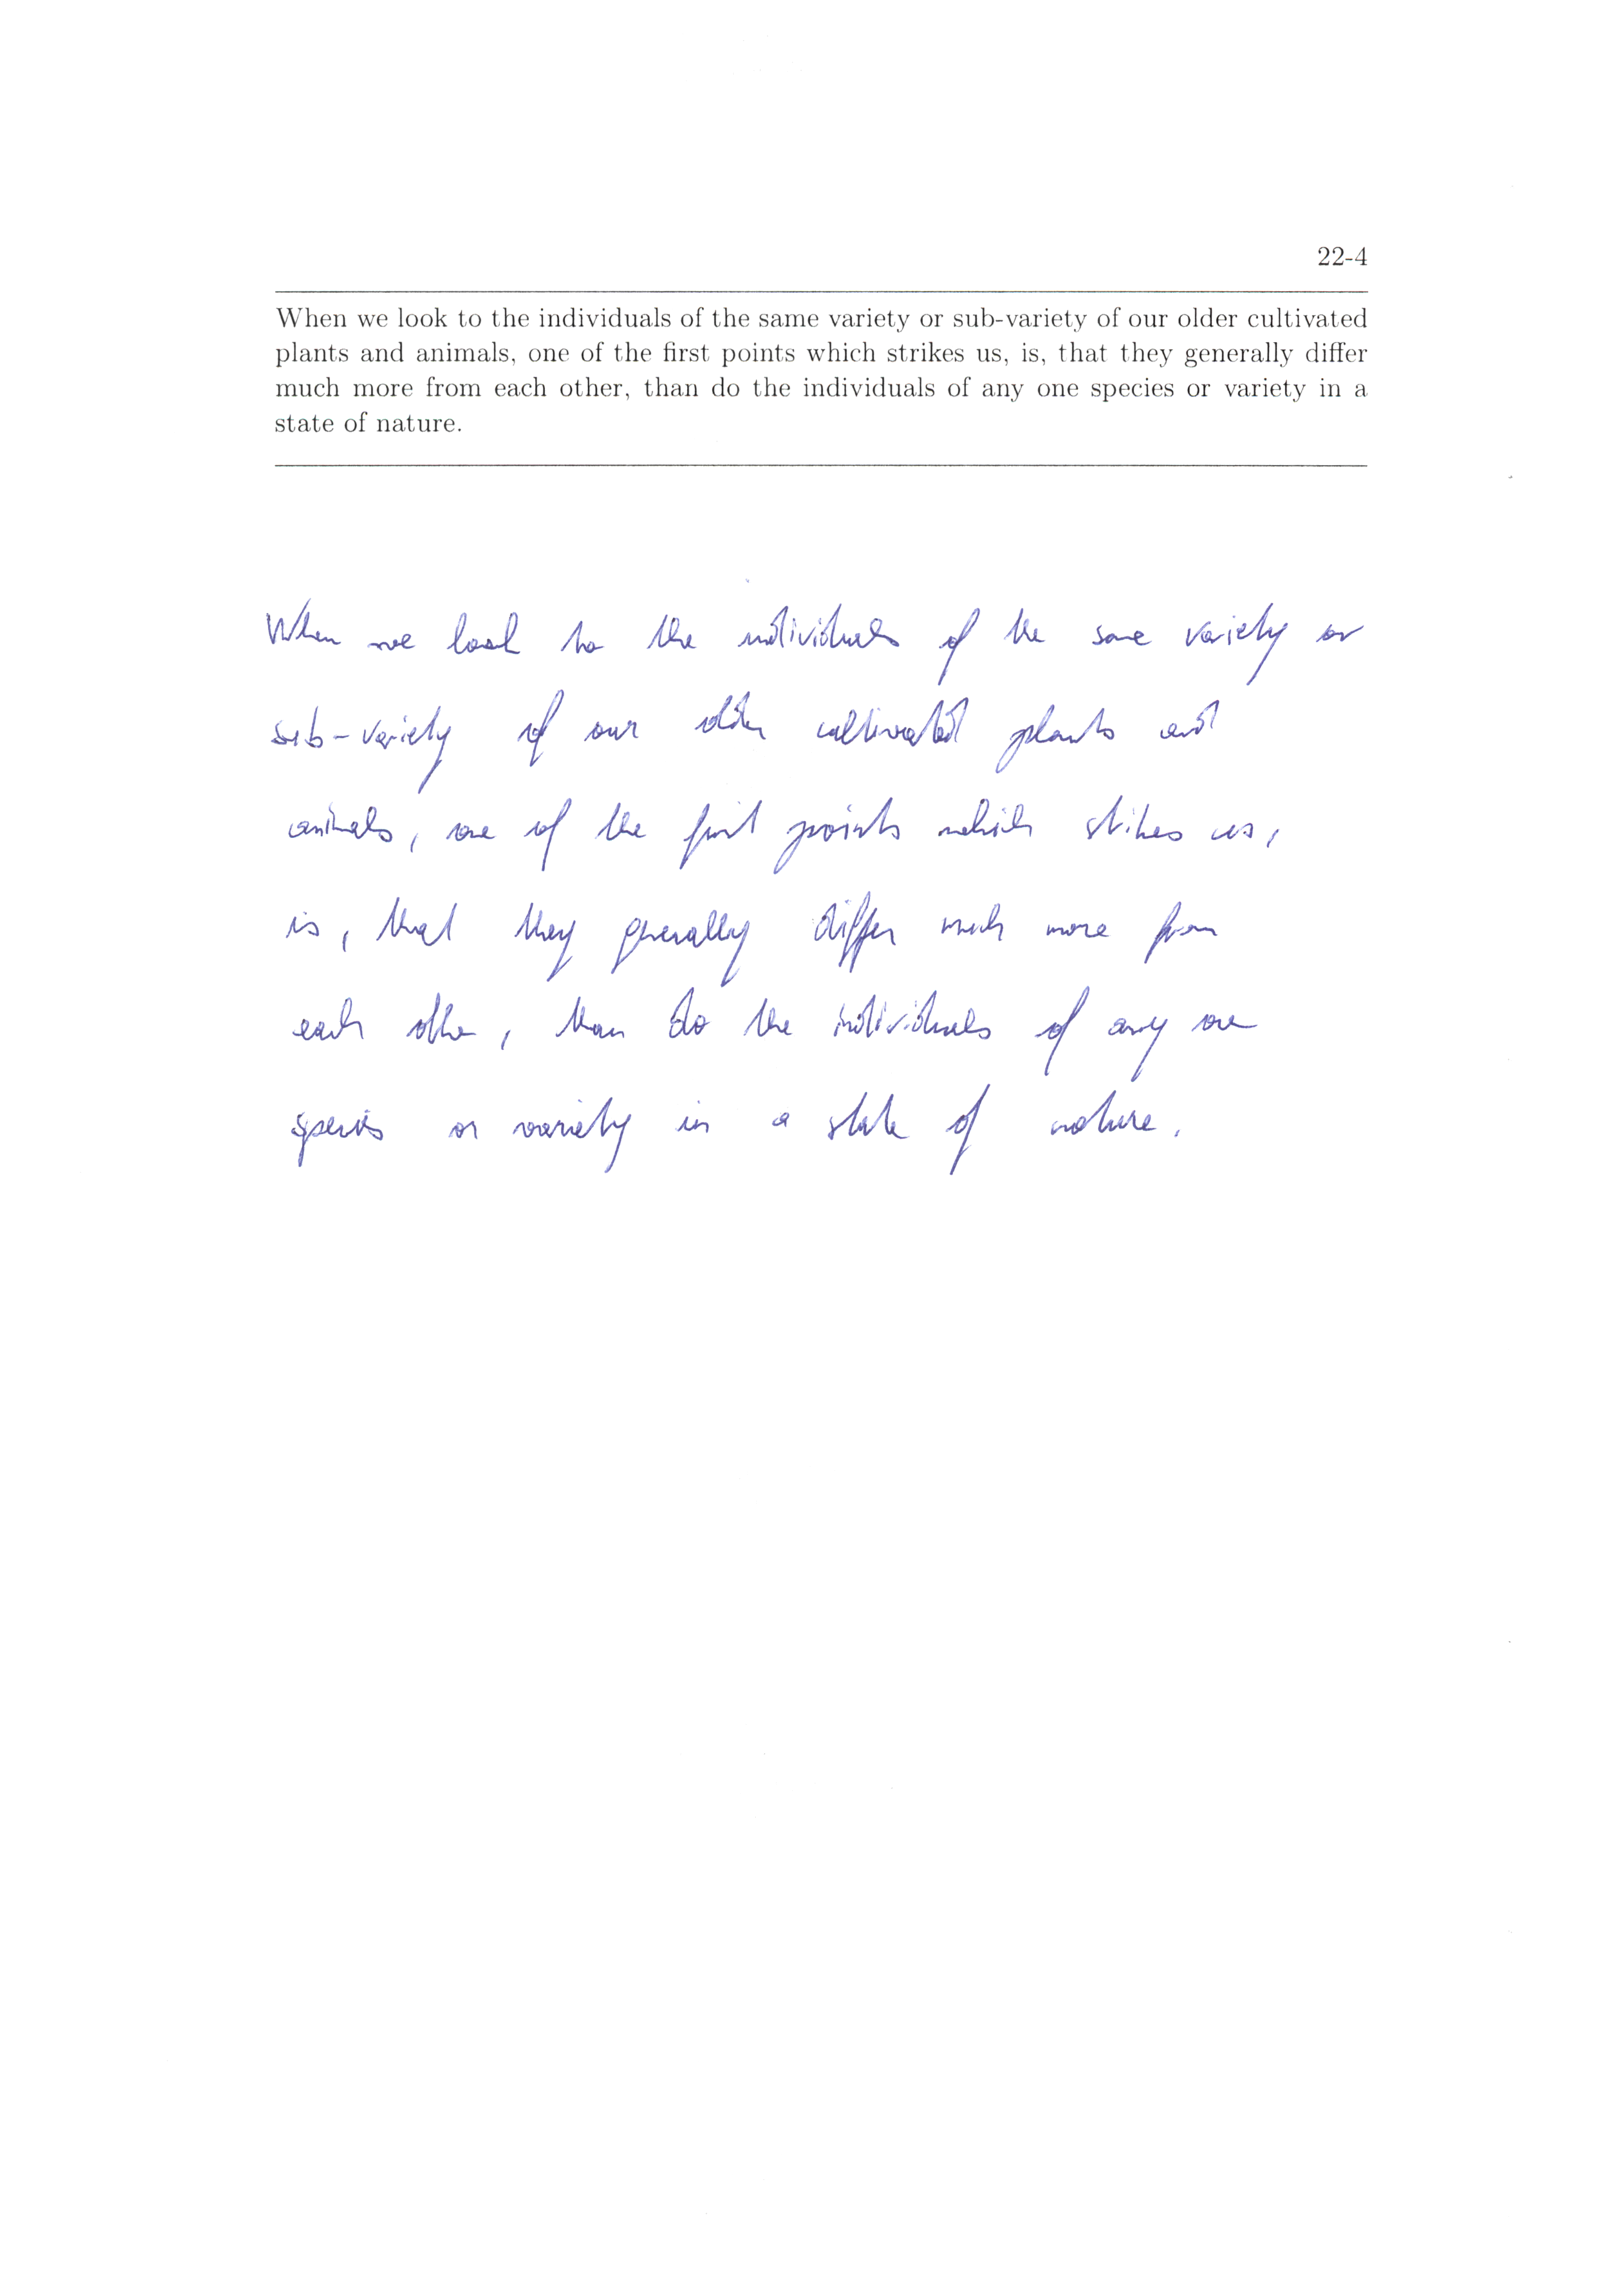 22-4
When we look to the individuals of the same variety or sub-variety of our older cultivated
plants and animals, one of the first points which strikes us, is, that they generally differ
much more from each other, than do the individuals of any one species or variety in a
state of nature.
When we look to the individuals of the same variety or
sub-variety of our older cultivated plants and
animals, one of the first points which strikes us,
is, that they generally differ much more from
each other, than do the individuals of any one
species or variety in a state of nature.